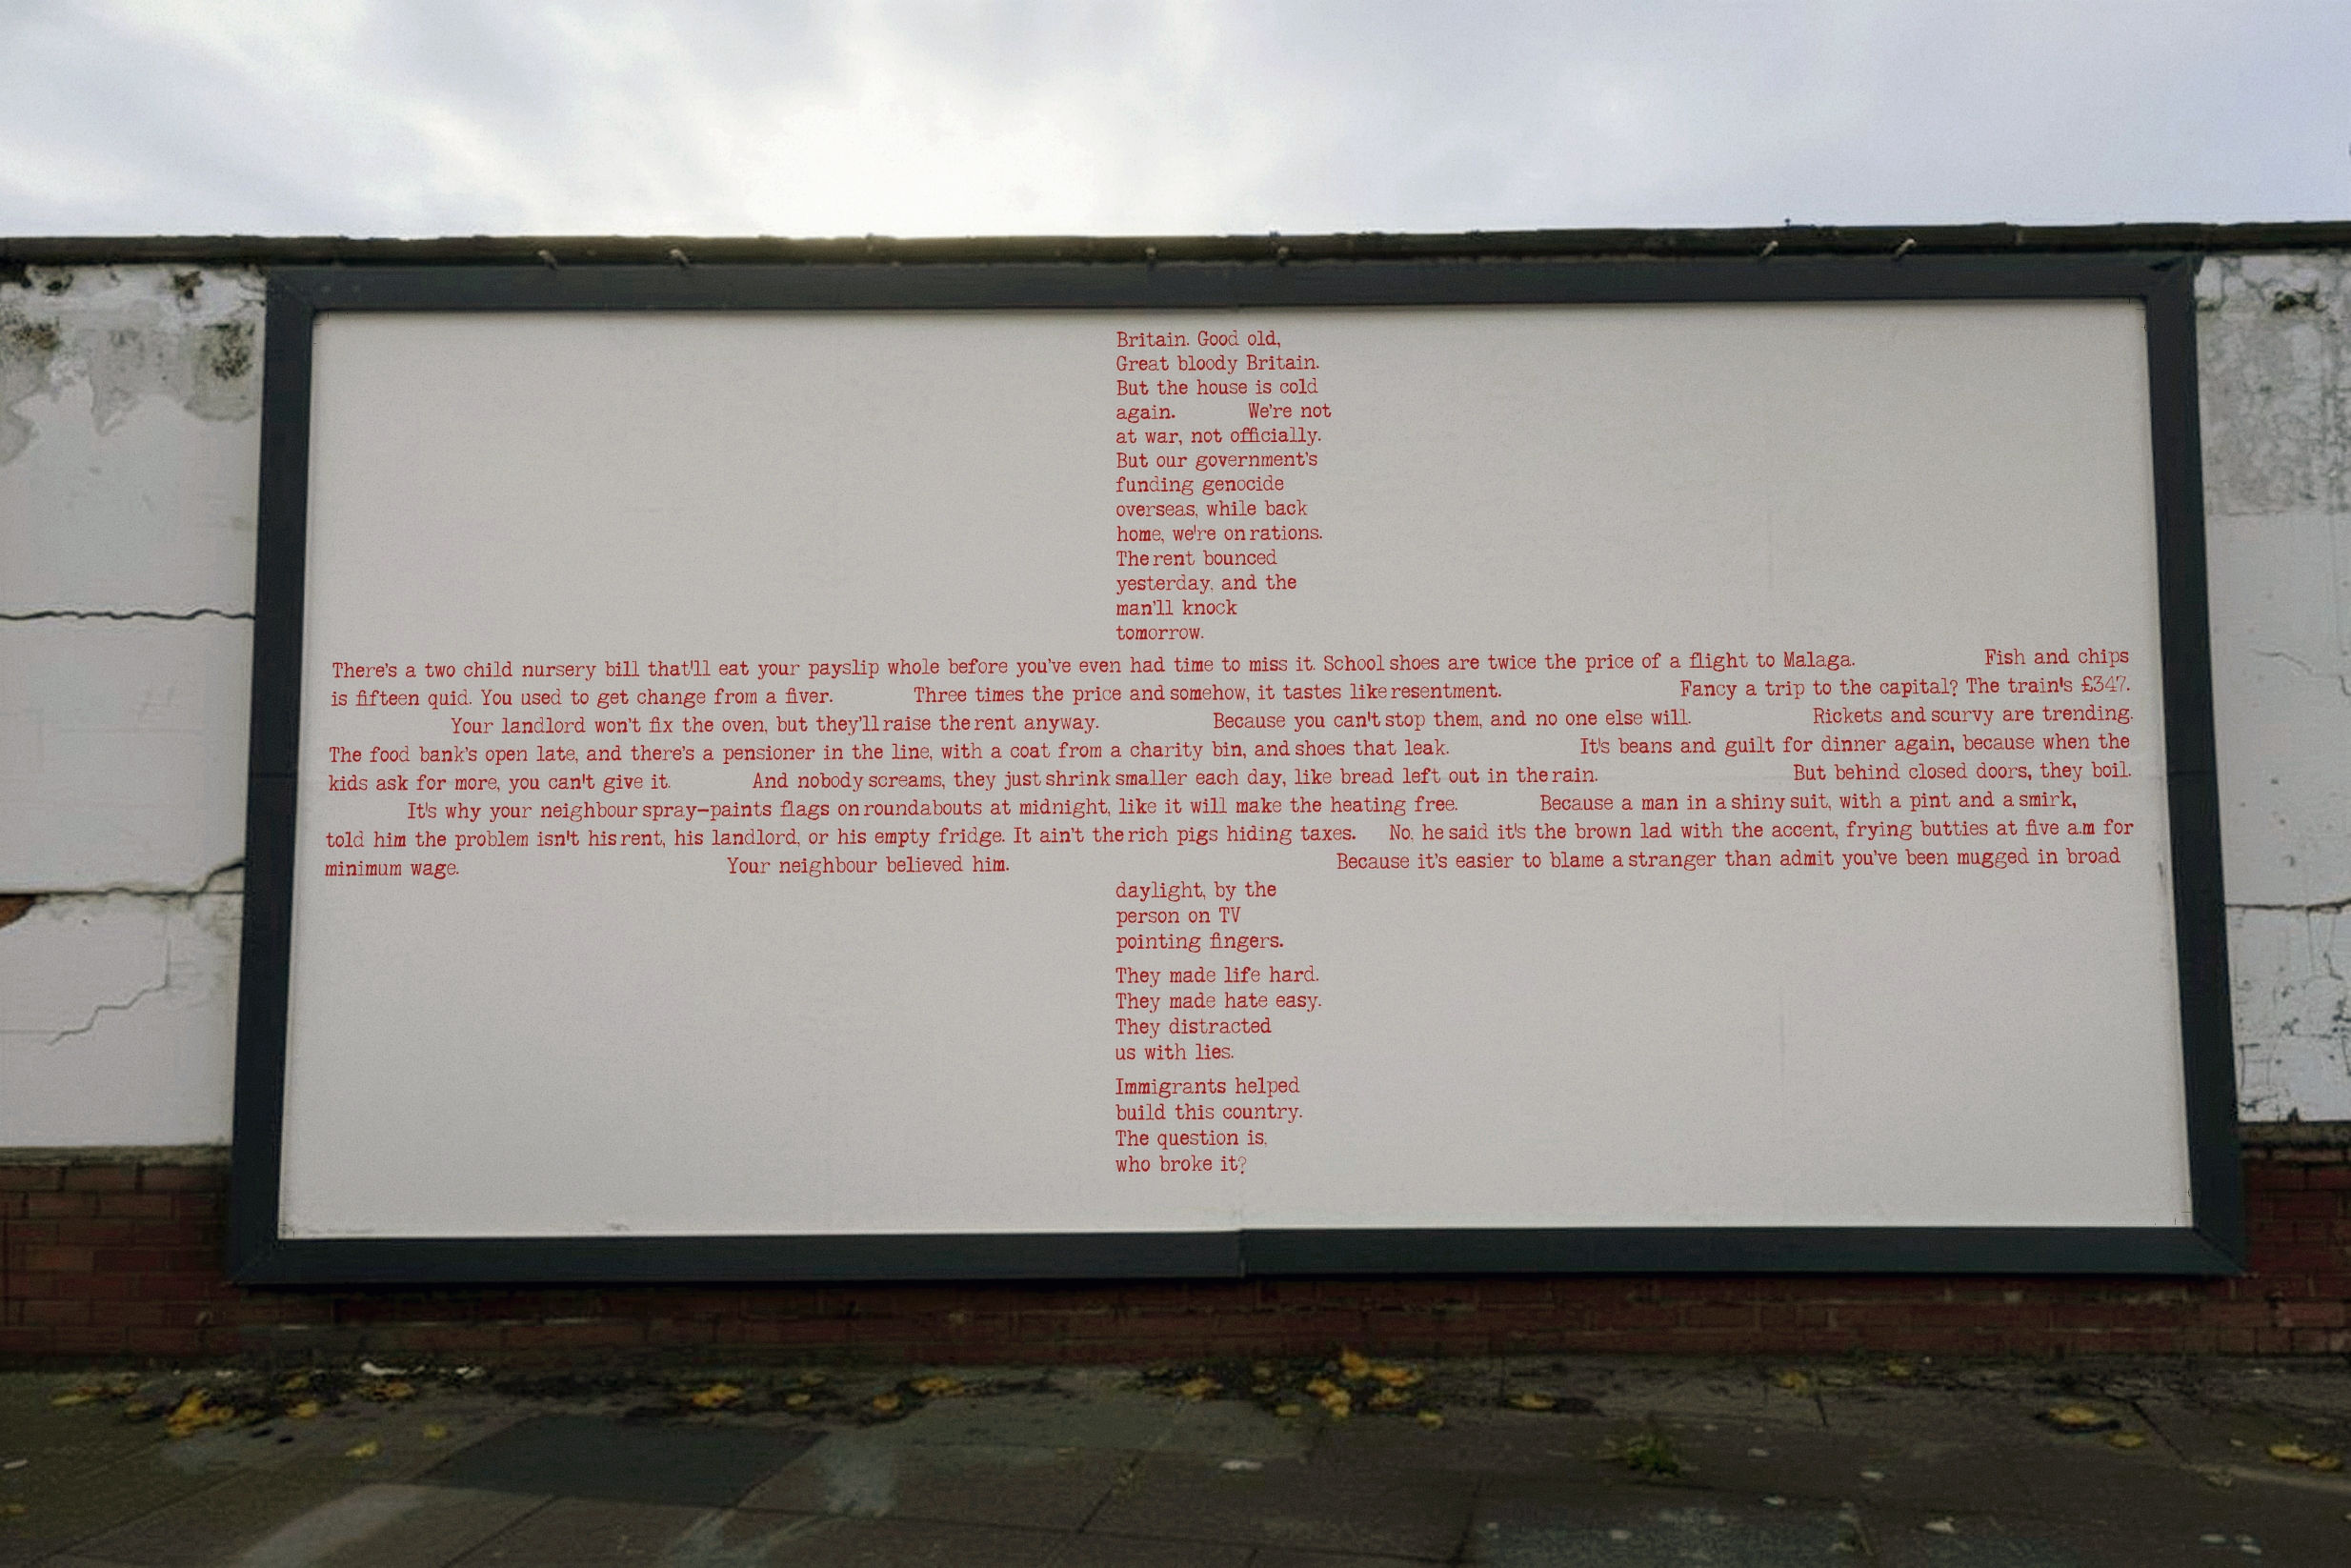 Britain. Good old,
Great bloody Britain.
But the house is cold
again. We're not
at war, not officially.
But our government's
funding genocide
overseas, while back
home, we're on rations.
The rent bounced
yesterday, and the
man'll knock
tomorrow.
There's a two child nursery bill that'll eat your payslip whole before you've even had time to miss it. School shoes are twice the price of a flight to Malaga. Fish and chips
is fifteen quid. You used to get change from a fiver. Three times the price and somehow, it tastes like resentment. Fancy a trip to the capital? The train's £347.
Your landlord won't fix the oven, but they'll raise the rent anyway. Because you can't stop them, and no one else will. Rickets and scurvy are trending.
The food bank's open late, and there's a pensioner in the line, with a coat from a charity bin, and shoes that leak. It's beans and guilt for dinner again, because when the
kids ask for more, you can't give it. And nobody screams, they just shrink smaller each day, like bread left out in the rain. But behind closed doors, they boil.
It's why your neighbour spray-paints flags on roundabouts at midnight, like it will make the heating free. Because a man in a shiny suit, with a pint and a smirk,
told him the problem isn't his rent, his landlord, or his empty fridge. It ain't the rich pigs hiding taxes. No, he said it's the brown lad with the accent, frying butties at five a.m for
minimum wage. Your neighbour believed him. Because it's easier to blame a stranger than admit you've been mugged in broad
daylight, by the
person on TV
pointing fingers.
They made life hard.
They made hate easy.
They distracted
us with lies.
Immigrants helped
build this country.
The question is,
who broke it?